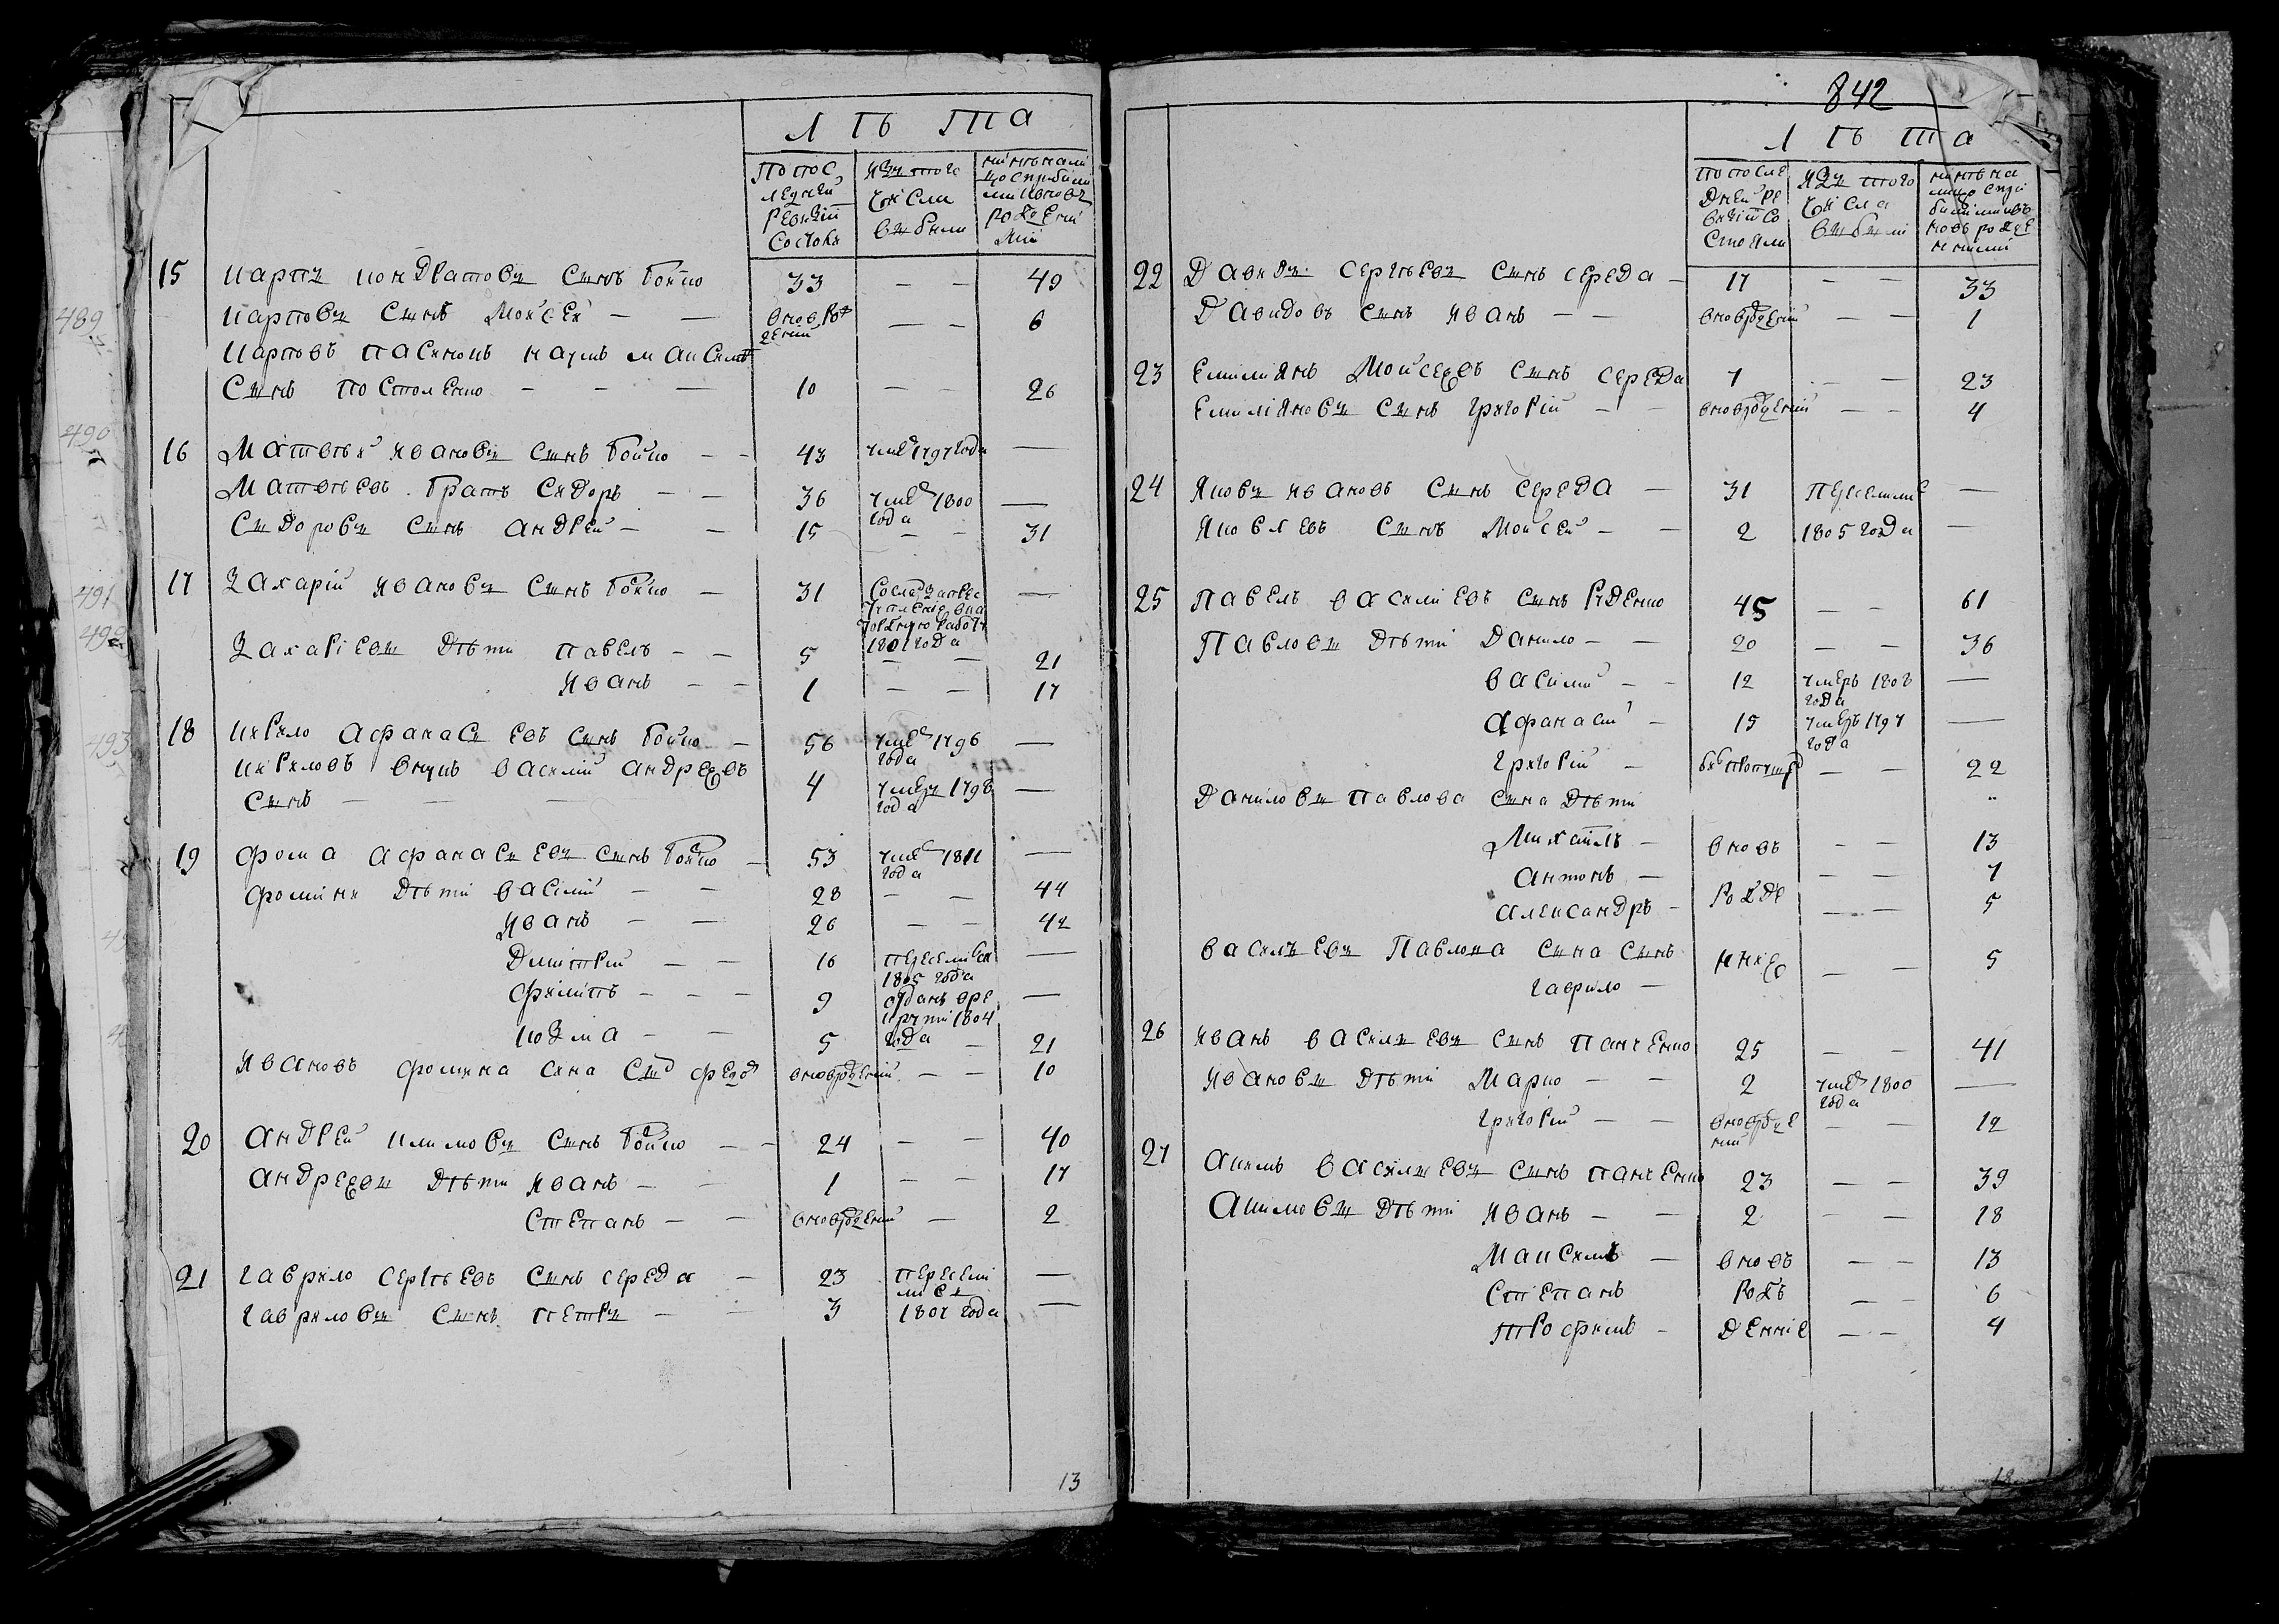 ЛѢТА
по пос
ледней
ревизіи
состоя
изъ того
числа
выбыли
ныне на ли
цо с прибыли
ми и вновь
рожденны
ми
15 Карпъ Кондратовъ сынъ Бойко 33 — — 49
Карповъ сынъ Мойсей — — вновь рож
денный — — 6
Карповъ пасынокъ Наумъ Максимъ
сынъ Постоленко — — — 10 — — 26
16 Матвей Ивановъ сынъ Бойко — — 43 умре 1797 года —
Матвеевъ братъ Сидоръ — — 36 умре 1800
года —
Сыдоровъ сынъ Андрей — — 15 — — 31
17 Захарій Ивановъ сынъ Бойко — 31 сосла за прес
тупленіе в ка
торжную работу
1801 года —
Захаріевы дѣти Павелъ — — 5 — — 21
Иванъ — — 1 — — 17
18 Кирило Афанасьевъ сынъ Бойко — 56 умре 1796
года —
Кириловъ внукъ Василій Андреевъ
сынъ — — — 4 умеръ 1796
года —
19 Фома Афанасьевъ сынъ Бойко — 53 умре 1811
года —
Фомины дѣти Василій — — 28 — — 44
Иванъ — — 26 — — 42
Дмитрій — — 16 переселился
1805 года —
Филипъ — — — 9 отданъ в ре
круты 1804
года —
Козма — — 5 — 21
Ивановъ Фомина сына сынъ Федоръ вноврожденный — — 10
20 Андрей Климовъ сынъ Бойко — — 24 — — 40
Андреевы дѣти Иванъ — — 1 — — 17
Степанъ — — вноврожденный — 2
21 Гаврило Сергѣевъ сынъ Середа — 23 пересели
лися
1807 года —
Гавриловъ сынъ Петръ — — 3 —
13
842
ЛѢТА
по после
дней ре
визіи со
стояли
изъ того
числа
выбыли
нынѣ на
лицо с при
былыми и в
новь рожде
нными
22 Давидъ Сергѣевъ сынъ Середа — 17 — — 33
Давидовъ сынъ Иванъ — — вноврожденный — — 1
23 Емилиянъ Мойсеевъ сынъ Середа 7 — — 23
Емиліяновъ сынъ Григорій — — вноврожденный — — 4
24 Яковъ Ивановъ сынъ Середа — 31 переселилис —
Яковлевъ сынъ Мойсей — — 2 1805 года —
25 Павелъ Василіевъ сынъ Руденко 45 — — 61
Павловы дѣти Данило — — 20 — — 36
Василій — — 12 умеръ 1808
года —
Афанасій — 15 умеръ 1797
года —
Григорій — был пропущен — — 22
Даниловы Павлова сына дѣти
Михаилъ — вновъ — — 13
Антонъ — — — 7
Александръ — рожде — — 5
Васильевъ Павлова сына сынъ
Гаврило — нные — — 5
26 Иванъ Васильевъ сынъ Панченко 25 — — 41
Ивановы дѣти Марко — — 2 умре 1800
года —
Григорій — — вноврожде
ный — — 12
27 Акимъ Васильевъ сынъ Панченко 23 — — 39
Акимовы дѣти Иванъ — — 2 — — 18
Максимъ — вновъ — — 13
Степанъ рожъ — — 6
Трофимъ — денніе — — 4